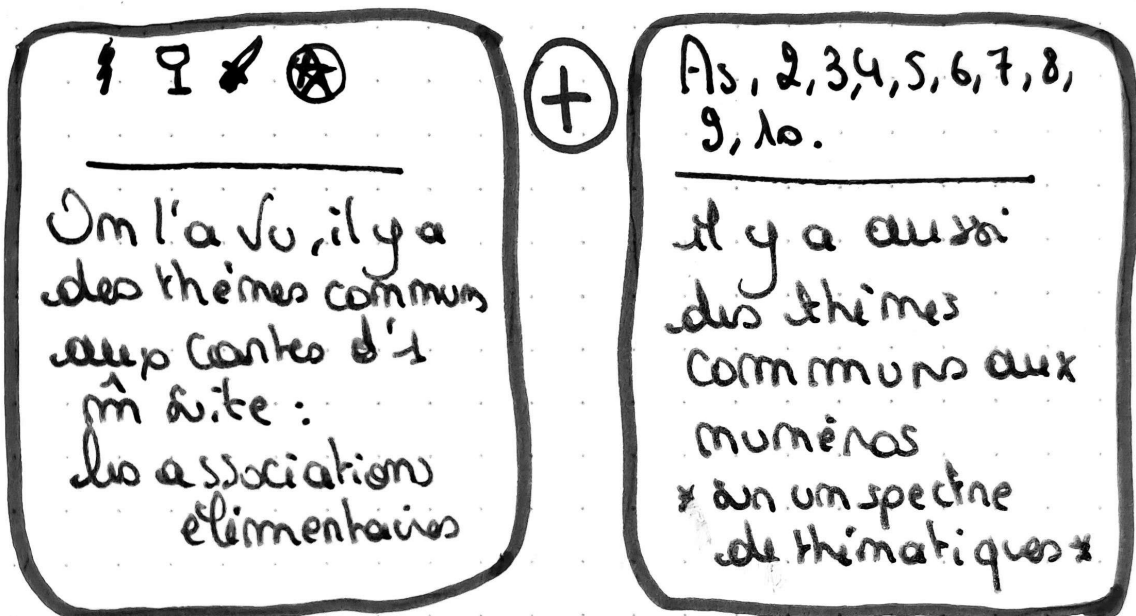 On l'a vu, il y a
des thèmes communs
aux cartes d'1
m̂ suite :
les associations
élémentaires
+
As, 2, 3, 4, 5, 6, 7, 8,
9, 10.
il y a aussi
des thèmes
communs aux
numéros
* sur un spectre
de thématiques *